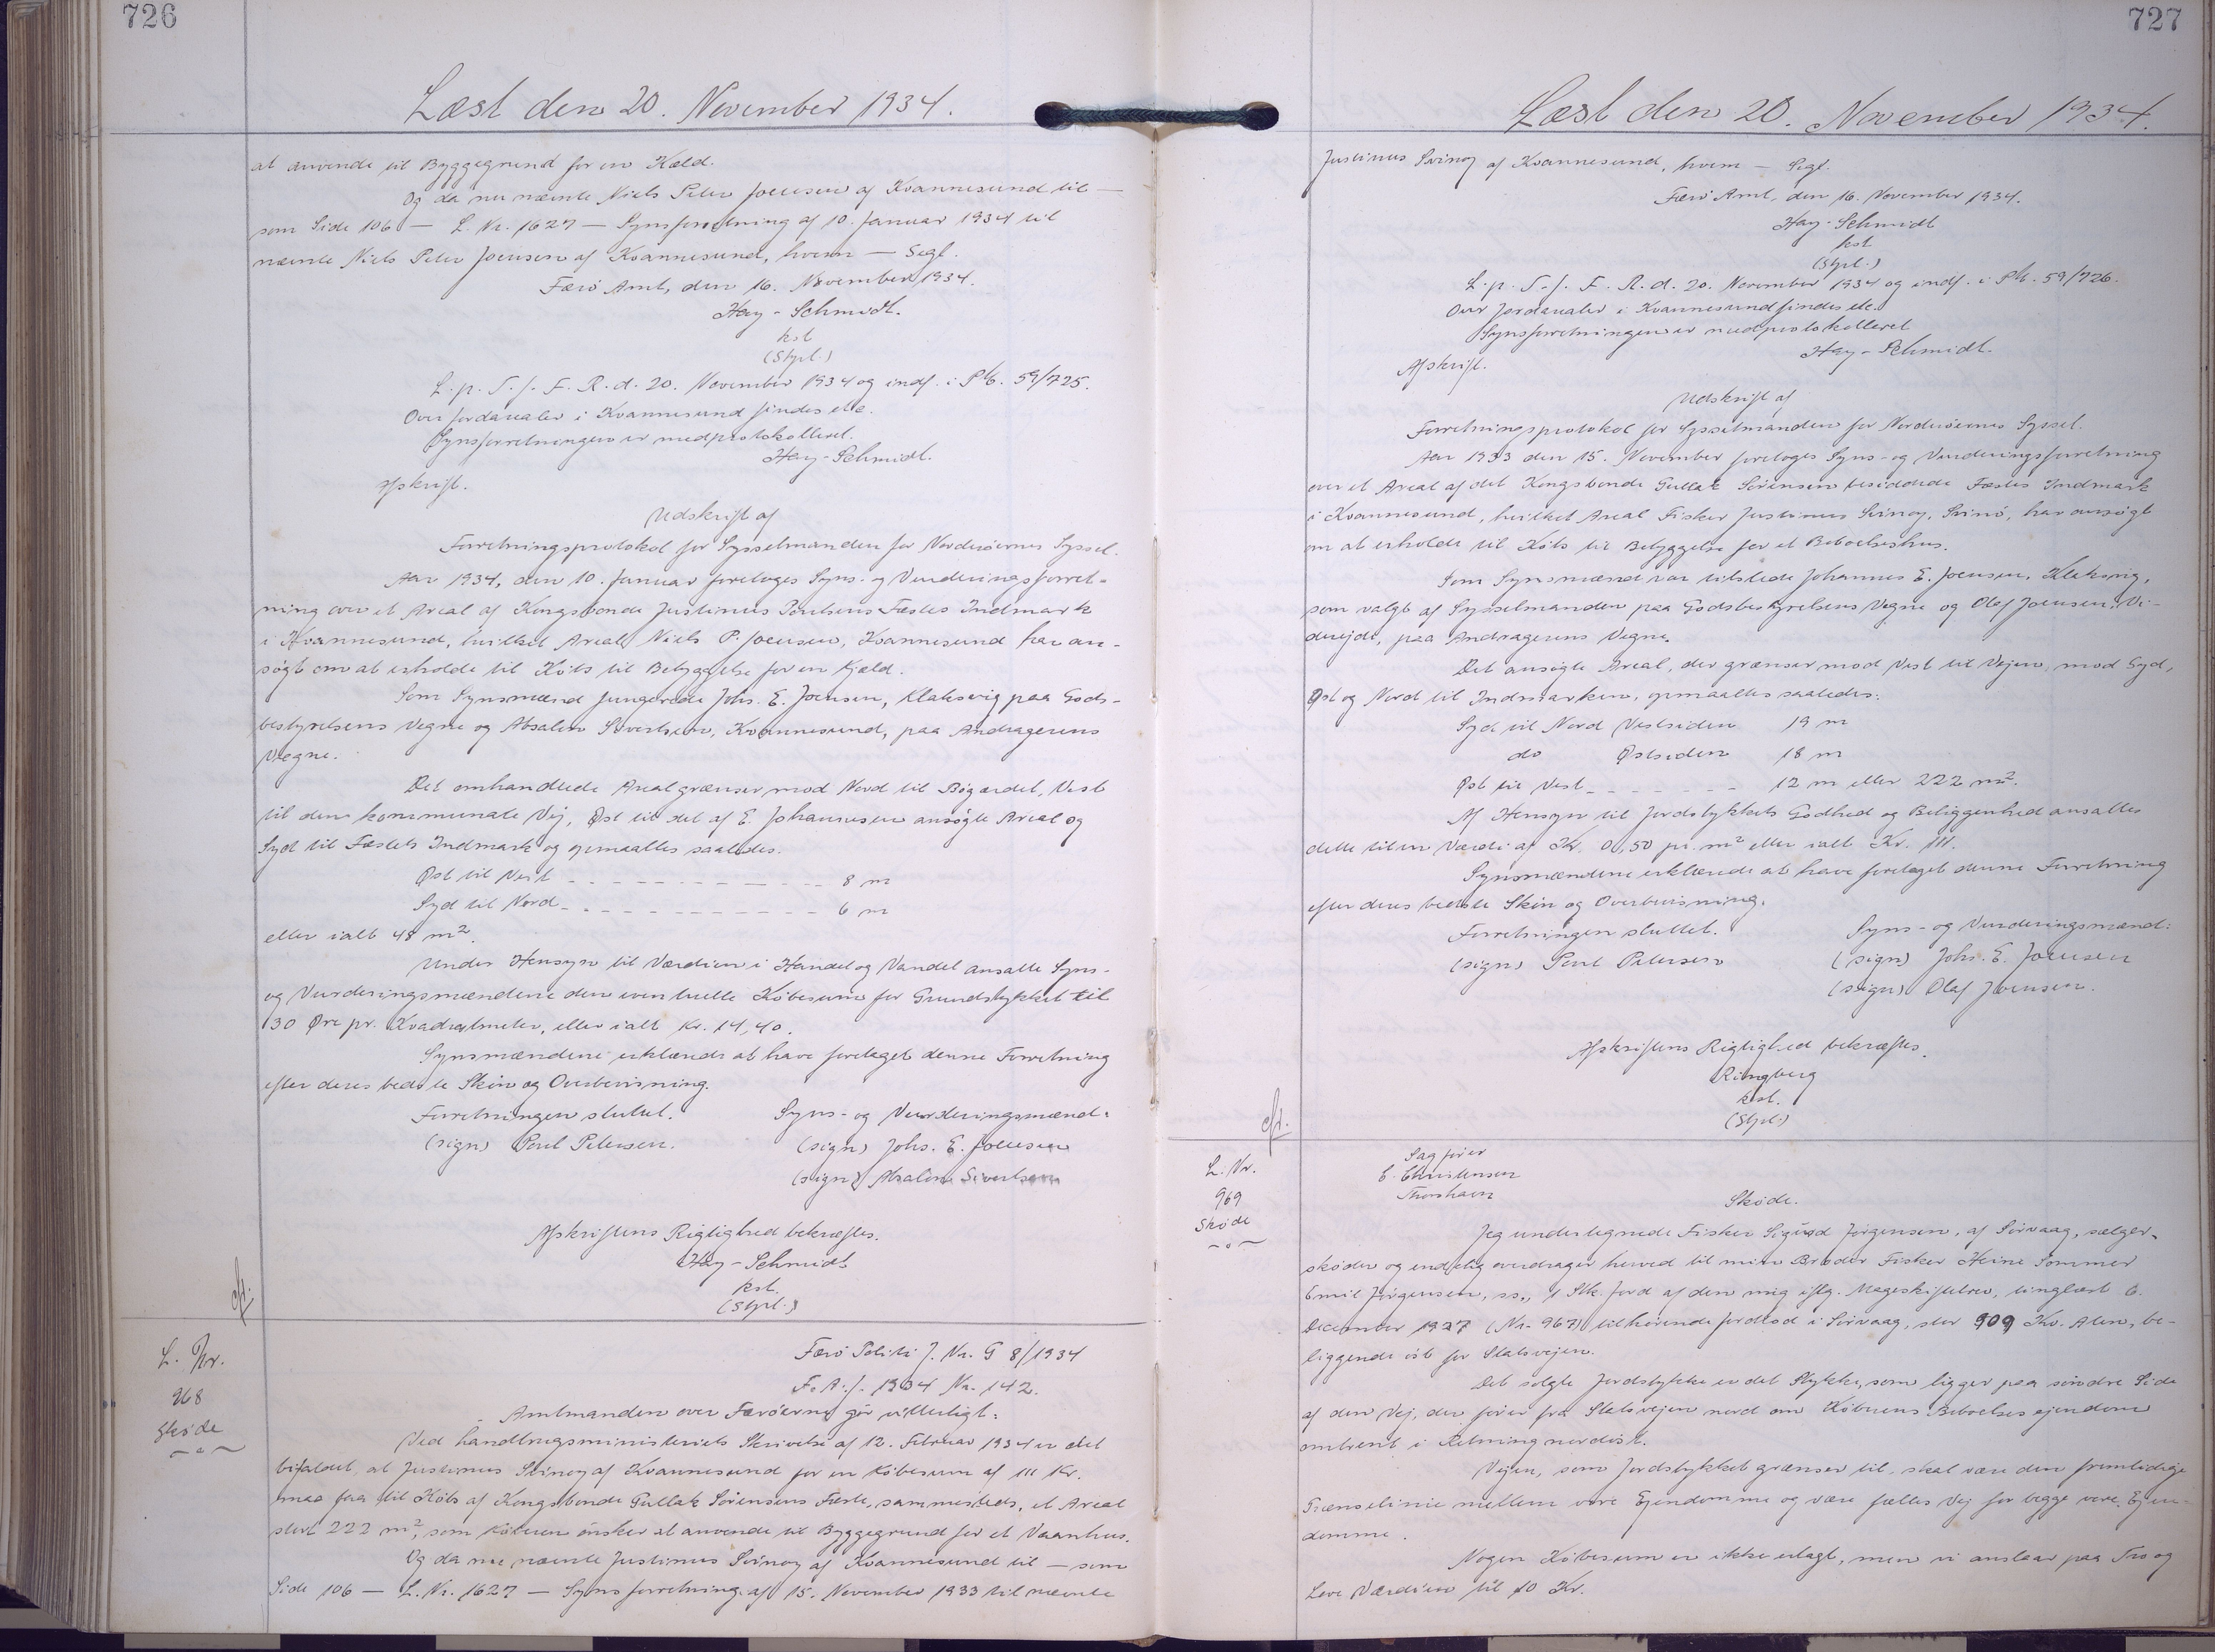 726
Læst den 20. November 1934.
at anvende til Byggegrund for en Kæld.
Og da nu nævnte Niels Peter Joensen af Kvannesund til —
som Side 106 — L. Nr. 1627 — Synsforretning af 10. Januar 1934 til
nævnte Niels Peter Joensen af Kvannesund, hvem — Segl.
Færö Amt, den 16. November 1934.
Hay-Schmidt.
kst
(Stpl.)
L. p. T. f. F. R. d. 20. November 1934 og indf. i Pk. 59/725.
Over Jordarealer i Kvannesund findes etc.
Synsforretningen er medprotokolleret.
Hay-Schmidt.
Afskrift.
Udskrift af
Forretningsprotokol for Sysselmanden for Norderöernes Syssel.
Aar 1934, den 10. Januar foretoges Syns- og Vurderingsforret-
ning over et Areal af Kongsbonde Justinus Poulsens Fæstes Indmark
i Kvannesund, hvilket Areal Niels P. Joensen, Kvannesund har an-
søgt om at erholde til Köbs til Bebyggelse for en Kjæld.
Som Synsmænd fungerede Johs. E. Joensen, Klaksvig paa Gods-
bestyrelsens Vegne og Absalon Sivertsen, Kvannesund, paa Andragerens
Vegne.
Det omhandlede Areal grænser mod Nord til Bögærdet, Vest
til den kommunale Vej, Øst til det af E. Johannesen ansøgte Areal og
Syd til Fæstets Indmark og opmaaltes saaledes.
Øst til Vest - - - - - - - - - 8 m
Syd til Nord - - - - - - - - - 6 m
eller ialt 48 m².
Under Hensyn til Værdien i Handel og Vandel ansatte Syns-
og Vurderingsmændene den eventuelle Köbesum for Grundstykket til
30 Øre pr. Kvadratmeter, eller ialt Kr. 14,40.
Synsmændene erklærede at have foretaget denne Forretning
efter deres bedste Skön og Overbevisning.
Forretningen sluttet. Syns- og Vurderingsmænd:
(sign) Poul Petersen. (sign) Johs. E. Joensen
(sign) Absalon Sivertsen
Afskriftens Rigtighed bekræftes.
Hay-Schmidt
kst.
(Stpl.)
L. Nr.
968
Sköde
Færö Politi J. Nr. G 8/1934
F. A. J. 1934 Nr. 142.
Amtmanden over Færöerne gör vitterligt:
Ved Landbrugsministeriets Skrivelse af 12. Februar 1934 er det
bifaldet, at Justinus Svinoy af Kvannesund for en Köbesum af 111 Kr.
maa faa til Köbs af Kongsbonde Gullak Sörensens Fæste, sammesteds, et Areal
stort 222 m², som Köberen ønsker at anvende til Byggegrund for et Vaanhus.
Og da nu nævnte Justinus Svinoy af Kvannesund til — som
Side 106 — L. Nr. 1627 — Synsforretning af 15. November 1933 til nævnte
727
Læst den 20. November 1934.
Justinus Svinoy af Kvannesund, hvem — Segl.
Færö Amt, den 16. November 1934.
Hay-Schmidt
kst
(Stpl.)
L. p. T. f. F. R. d. 20. November 1934 og indf. i Pk. 59/726.
Over Jordarealer i Kvannesund findes etc.
Synsforretningen er medprotokolleret
Hay-Schmidt.
Afskrift.
Udskrift af
Forretningsprotokol for Sysselmanden for Norderöernes Syssel.
Aar 1933 den 15. November foretoges Syns- og Vurderingsforretning
over et Areal af det Kongsbonde Gullak Sörensen besiddende Fæstes Indmark
i Kvannesund, hvilket Areal Fisker Justinus Svinoy, Svinö, har ansøgt
om at erholde til Köbs til Bebyggelse for et Beboelseshus.
Som Synsmænd var tilstede Johannes E. Joensen, Klaksvig,
som valgt af Sysselmanden paa Godsbestyrelsens Vegne og Olaf Joensen, Vi-
derejde, paa Andragerens Vegne.
Det ansøgte Areal, der grænser mod Vest til Vejen, mod Syd,
Øst og Nord til Indmarken, opmaaltes saaledes:
Syd til Nord Vestsiden 19 m
do Østsiden 18 m
Øst til Vest - - - - - - 12 m eller 222 m².
Af Hensyn til Jordstykkets Godhed og Beliggenhed ansattes
dette til en Værdi af Kr. 0,50 pr. m² eller ialt Kr. 111.
Synsmændene erklærede at have foretaget denne Forretning
efter deres bedste Skön og Overbevisning.
Forretningen sluttet. Syns- og Vurderingsmænd:
(sign) Poul Petersen (sign) Johs. E. Joensen
(sign) Olaf Joensen.
Afskriftens Rigtighed bekræftes.
Ringberg
kst.
(Stpl.)
L. Nr.
969
Sköde
Sagförer
E. Christensen
Thorshavn
Sköde.
Jeg undertegnede Fisker Sigurd Jörgensen, af Sörvaag, sælger,
sköder og endelig overdrager herved til min Broder Fisker Heine Sommer
Emil Jörgensen, ss., 1 Stk. Jord af den mig iflg. Mageskiftebrev, tinglæst 6.
December 1927 (Nr. 967) tilhørende Jordlod i Sörvaag, stor 909 Kv. Alen, be-
liggende öst for Statsvejen.
Det solgte Jordstykke er det Stykke, som ligger paa söndre Side
af den Vej, der förer fra Statsvejen nord om Köberens Beboelsesejendom
omtrent i Retning nordöst.
Vejen, som Jordstykket grænser til, skal være den fremtidige
Grænselinie mellem vore Ejendomme og være fælles Vej for begge vore Ejen-
domme.
Nogen Köbesum er ikke erlagt, men vi anslaar paa Tro og
Love Værdien til 10 Kr.